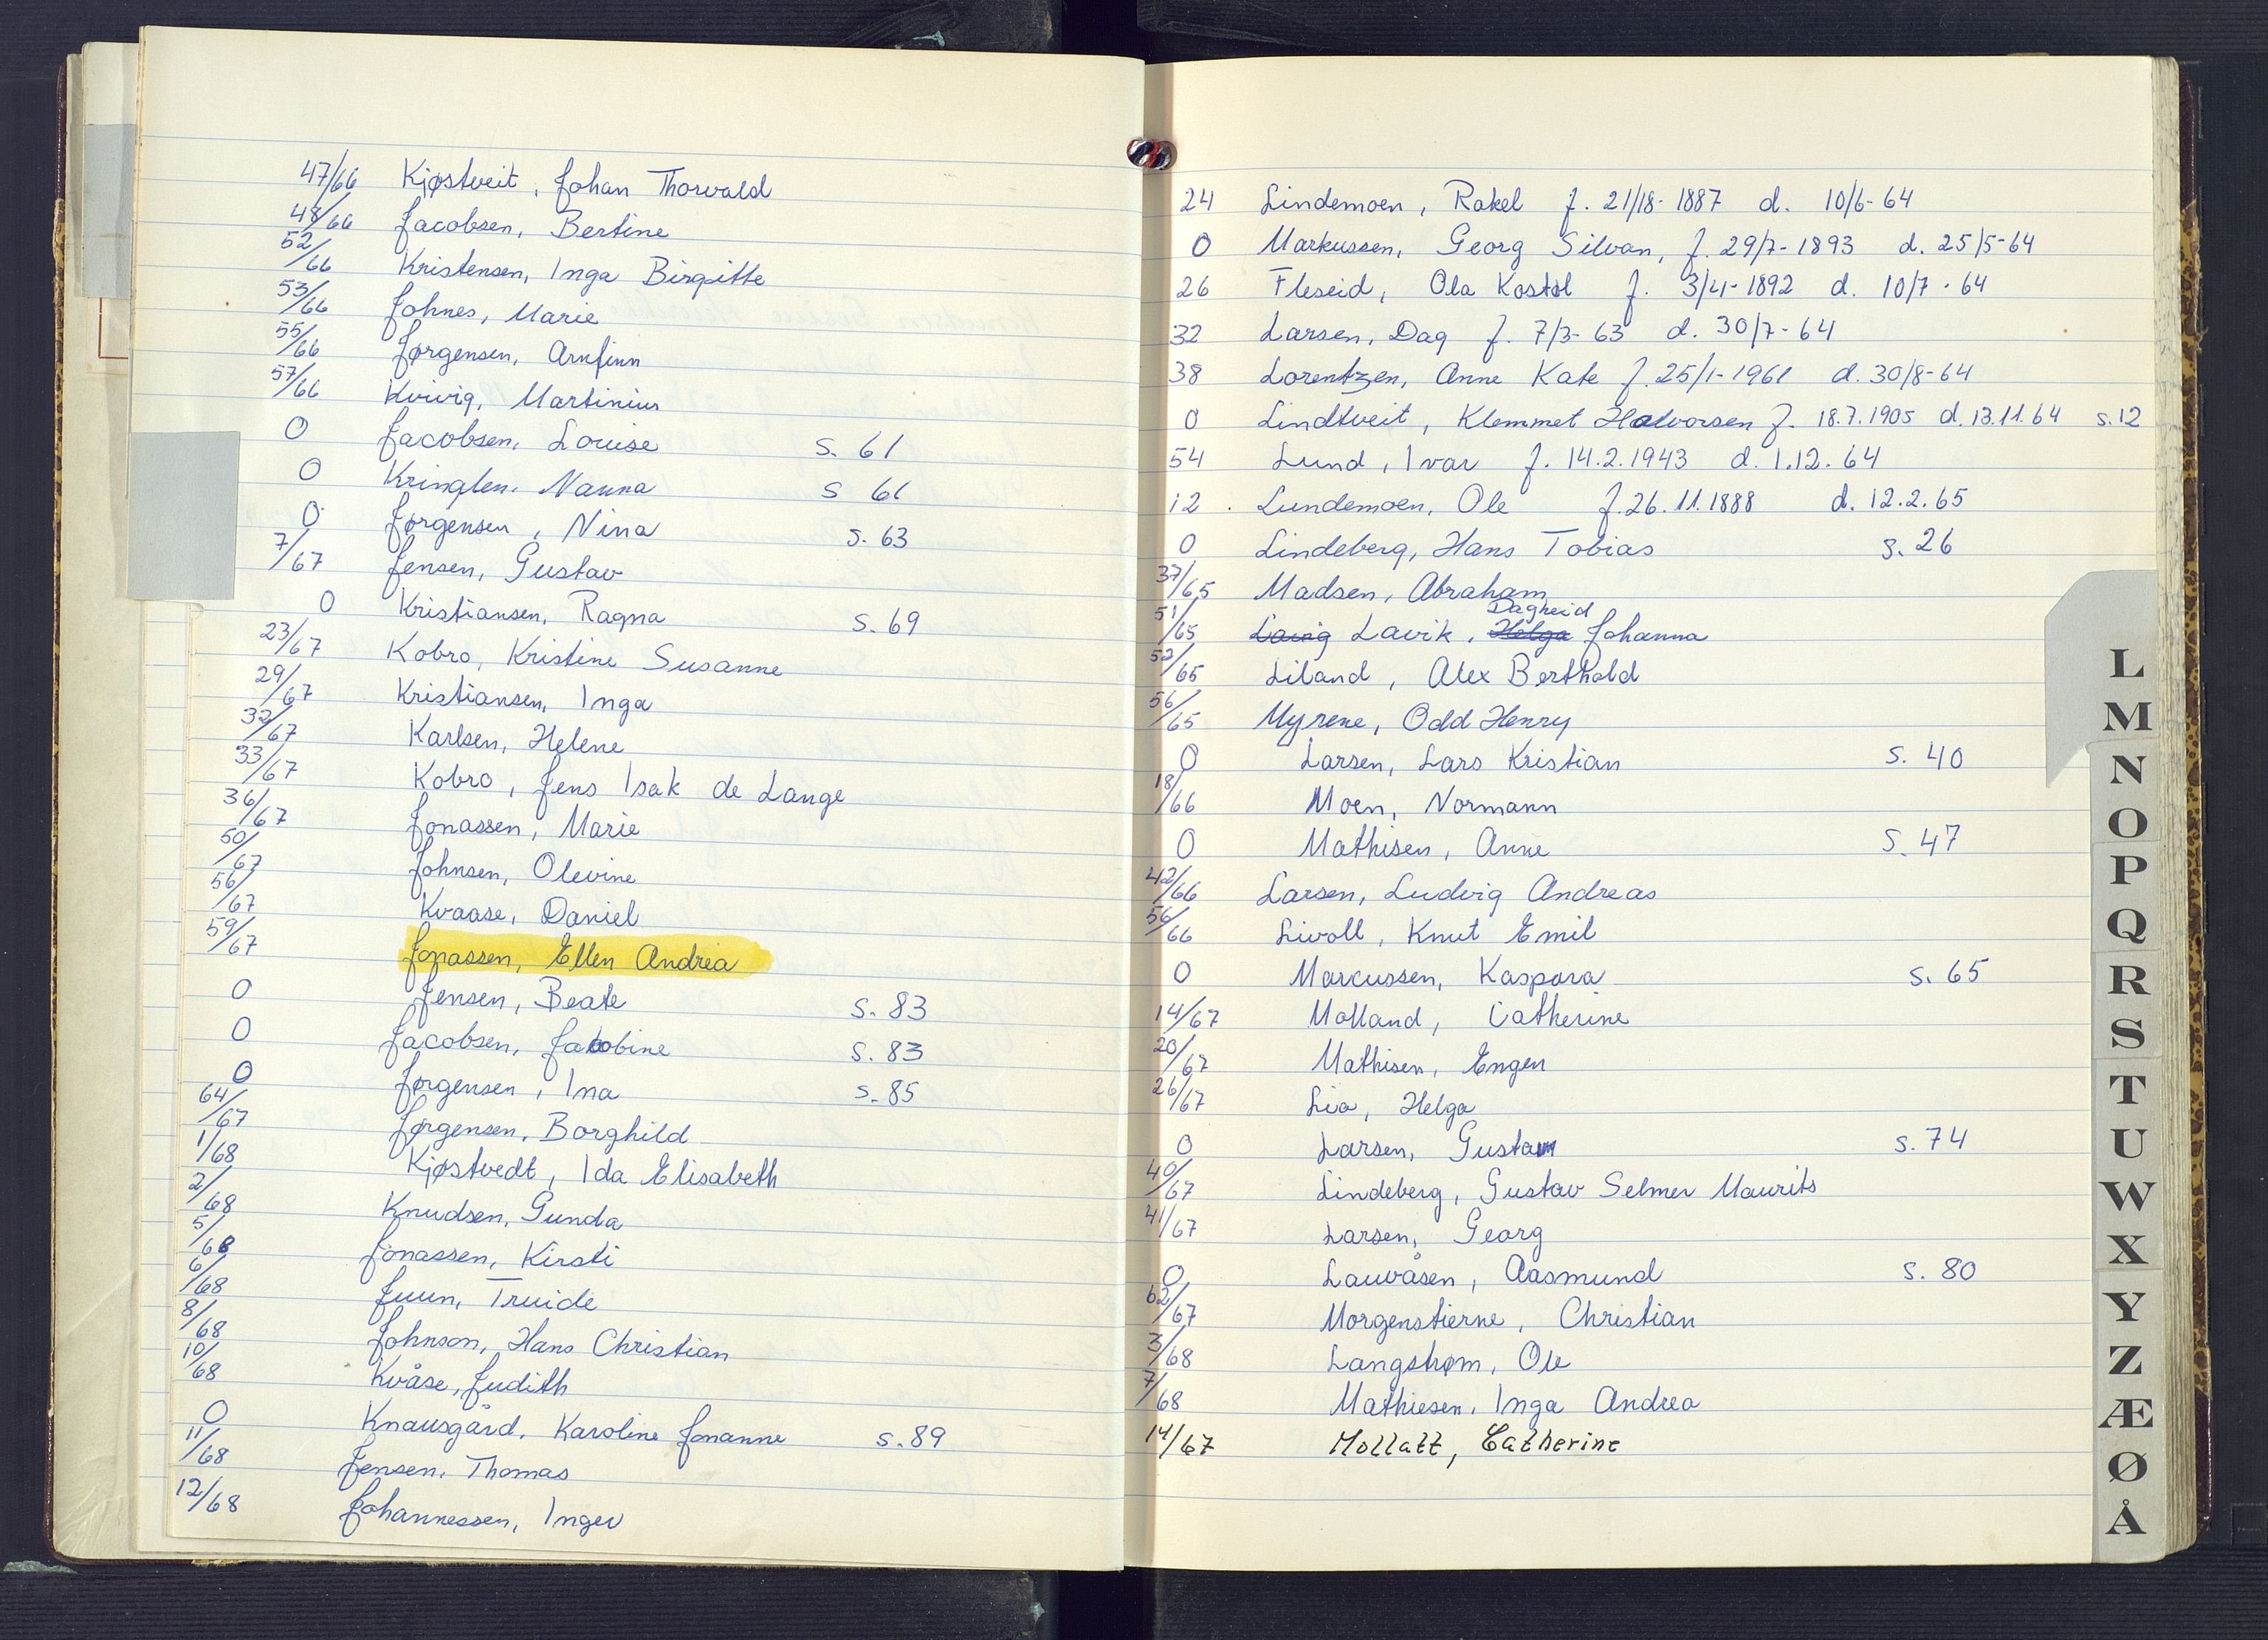 47/66 Kjøstveit, Johan Thorvald
48/66 Jacobsen, Bertine
52/66 Kristensen, Inga Birgitte
53/66 Johnes, Marie
55/66 Jørgensen, Arnfinn
57/66 Kvivig, Martinius
0 Jacobsen, Louise s. 61
0 Kringlen, Nanna s 61
0 Jørgensen, Nina s. 63
7/67 Jensen, Gustav
0 Kristiansen, Ragna s. 69
23/67 Kobro, Kristine Susanne
29/67 Kristiansen, Inga
32/67 Karlsen, Helene
33/67 Kobro, Jens Isak de Lange
36/67 Jonassen, Marie
50/67 Johnsen, Olevine
56/67 Kvaase, Daniel
59/67 Jonassen, Ellen Andrea
0 Jensen, Beate s. 83
0 Jacobsen, Jacobine s. 83
0 Jørgensen, Ina s. 85
64/67 Jørgensen, Borghild
1/68 Kjøstvedt, Ida Elisabeth
2/68 Knudsen, Gunda
5/68 Jonassen, Kirsti
6/68 Juun, Truide
8/68 Johnson, Hans Christian
10/68 Kvåse, Judith
0 Knausgård, Karoline Jonanne s. 89
11/68 Jensen, Thomas
12/68 Johannessen, Inger
24 Lindemoen, Rakel f. 21/18-1887 d. 10/6-64
0 Markussen, Georg Silvan, f. 29/7-1893 d. 25/5-64
26 Fleseid, Ola Kostøl f. 3/4-1892 d. 10/7-64
32 Larsen, Dag f. 7/3-63 d. 30/7-64
38 Lorentzen, Anne Kate f. 25/1-1961 d. 30/8-64
0 Lindtveit, Klemmet Halvorsen f. 18.7.1905 d. 13.11.64 s.12
54 Lund, Ivar f. 14.2.1943 d. 1.12.64
12 Lundemoen, Ole f. 26.11.1888 d. 12.2.65
0 Lindeberg, Hans Tobias s. 26
37/65 Madsen, Abraham
Dagheid
51/65 Lavig Lavik, Helga Johanna
52/65 Liland, Alex Berthold
56/65 Myrene, Odd Henry
0 Larsen, Lars Kristian s. 40
18/66 Moen, Normann
0 Mathisen, Anne s. 47
42/66 Larsen, Ludvig Andreas
56/66 Livoll, Knut Emil
0 Marcussen, Kaspara s. 65
14/67 Molland, Catherine
20/67 Mathisen, Engen
26/67 Lia, Helga
0 Larsen, Gustav s. 74
40/67 Lindeberg, Gustav Selmer Maurits
41/67 Larsen, Georg
0 Lauvåsen, Aasmund s. 80
62/67 Morgenstierne, Christian
3/68 Langstrøm, Ole
7/68 Mathiesen, Inga Andrea
14/67 Mollatt, Catherine
L
M
N
O
P
Q
R
S
T
U
W
X
Y
Z
Æ
Ø
Å